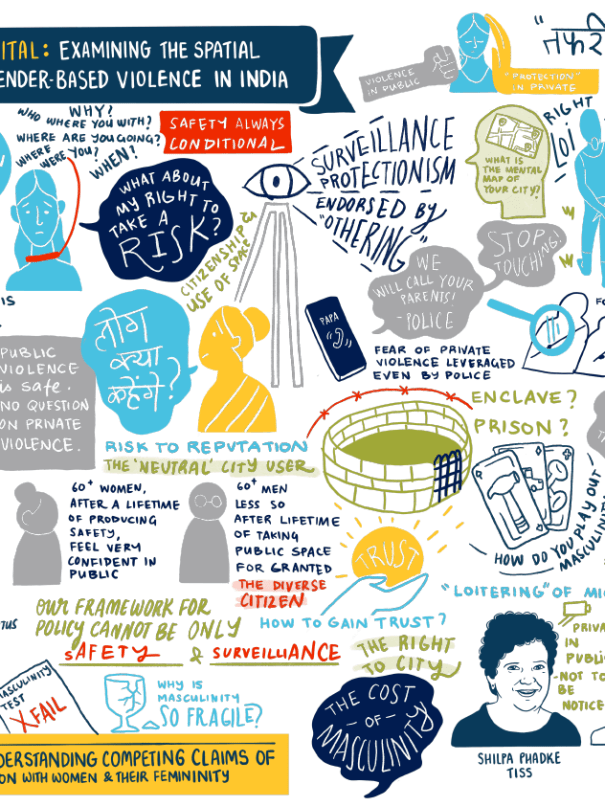 ITAL: EXAMINING THE SPATIAL
ENDER-BASED VIOLENCE IN INDIA
VIOLENCE
IN PUBLIC
"PROTECTION"
IN PRIVATE
WHY?
WHO WERE YOU WITH?
WHERE ARE YOU GOING?
WHERE
WERE YOU?
WHEN?
SAFETY ALWAYS
CONDITIONAL
WHAT ABOUT
MY RIGHT TO
TAKE A
RISK?
SURVEILLANCE
PROTECTIONISM
ENDORSED BY
"OTHERING"
WHAT IS
THE MENTAL
MAP OF
YOUR CITY?
RIGHT
LOI
CITIZENSHIP &
USE OF SPACE
WE
WILL CALL YOUR
PARENTS!
- POLICE
STOP
TOUCHING!
IS
PUBLIC
VIOLENCE
is safe.
NO QUESTION
ON PRIVATE
VIOLENCE.
लोग
क्या
कहेंगे?
PAPA
FEAR OF PRIVATE
VIOLENCE LEVERAGED
EVEN BY POLICE
FO
ENCLAVE?
PRISON?
RISK TO REPUTATION
THE 'NEUTRAL' CITY USER
60+ WOMEN,
AFTER A LIFETIME
OF PRODUCING
SAFETY,
FEEL VERY
CONFIDENT IN
PUBLIC
60+ MEN
LESS SO
AFTER LIFETIME
OF TAKING
PUBLIC SPACE
FOR GRANTED
THE DIVERSE
CITIZEN
TRUST
HOW TO GAIN TRUST?
HOW DO YOU PLAY OUT
MASCULINITY
"LOITERING" OF MI
OUR FRAMEWORK FOR
POLICY CANNOT BE ONLY
SAFETY & SURVEILLANCE
THE RIGHT
TO CITY
MASCULINITY
TEST
X FAIL
WHY IS
MASCULINITY
SO FRAGILE?
THE COST
- OF -
MASCULINITY
PRIVA
IN
PUBLI
- NOT TO
BE
NOTICE
SHILPA PHADKE
TISS
DERSTANDING COMPETING CLAIMS OF
ON WITH WOMEN & THEIR FEMININITY